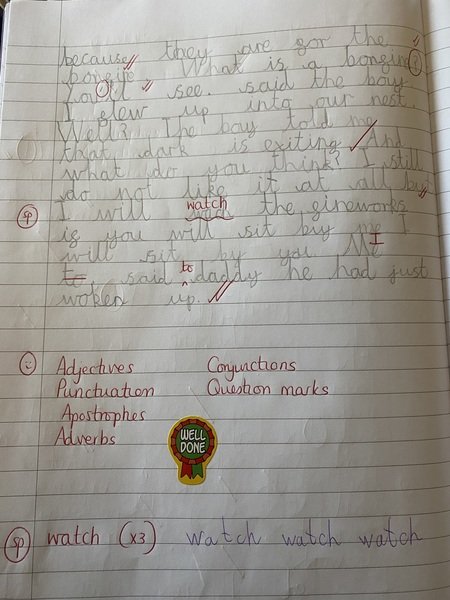 because they are for the
bongire What is a bongire?
You'll see. said the boy
I flew up into our nest.
Well? The boy told me
that dark is exiting And
what do you think? I still
do not like it at all but
watch
sp I will the gireworks
is you will sit by me I
will sit by you Me I
to said to daddy he had just
woken up.
Adjectives Conjunctions
Punctuation Question marks
Apostrophes
Adverbs
WELL
DONE
sp watch (x3) watch watch watch